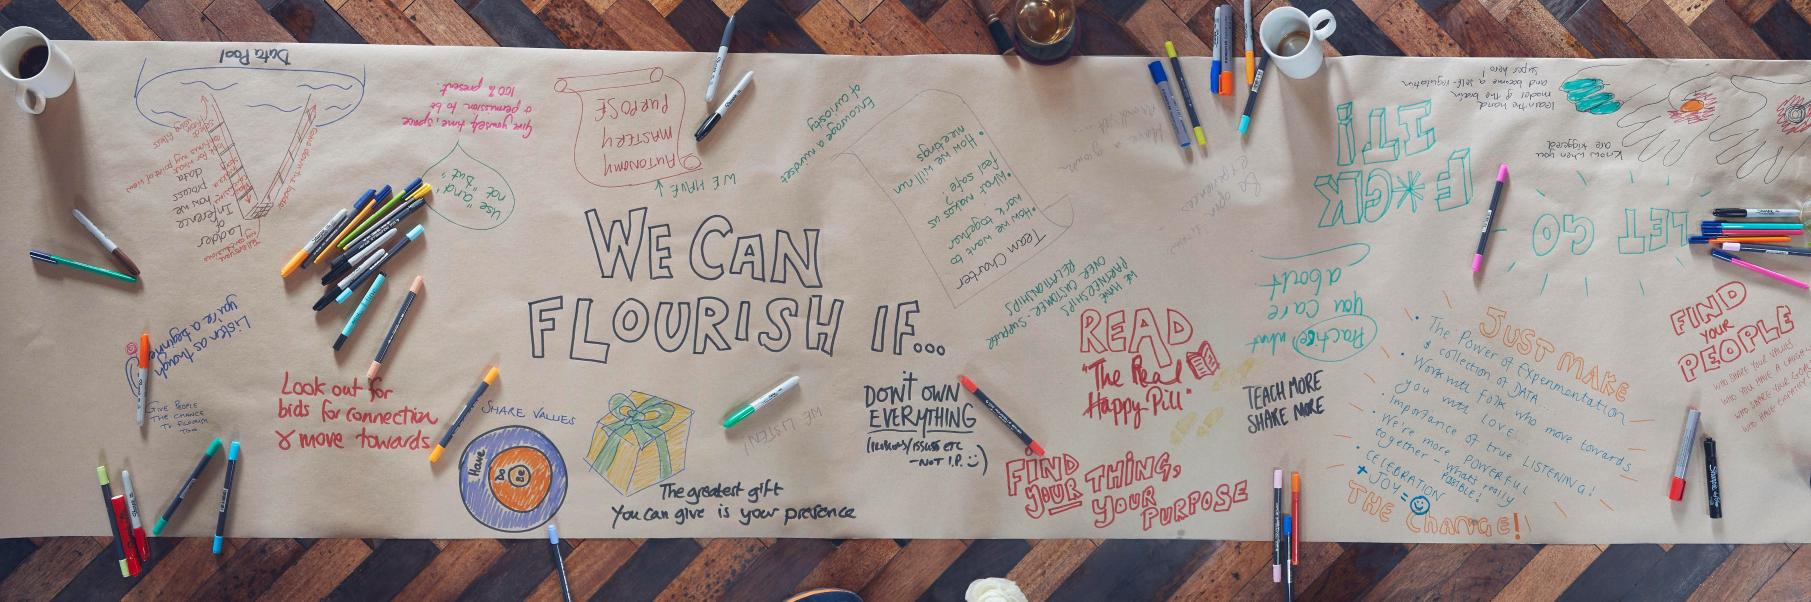 Data Pool
Ladder
of
Inference
how we
process
data
Give yourself time, space
& permission to be
100% present.
Use "and"
not "but"
PURPOSE
MASTERY
AUTONOMY
WE HAVE
Encourage a mindset
of curiosity
Team Charter
• How we want to
work together
• What makes us
feel safe?
• How we will run
meetings
WE HAVE
PARTNERSHIPS
OVER CUSTOMER-SUPPLIER
RELATIONSHIPS
F*CK
IT!
Learn the hand
model of the brain
and become a self-regulation
super hero!
Know when you
are triggered.
LET GO
Practice what
you care
about
Listen as though
you're a beginner
GIVE PEOPLE
THE CHANCE
TO FLOURISH
TOO
Look out for
bids for connection
& move towards.
SHARE VALUES
Have
Do
Be
WE CAN
FLOURISH IF...
The greatest gift
you can give is your presence
WE LISTEN!
DON'T OWN
EVERYTHING
(problems/issues etc
-NOT I.P. )
READ
"The Real
Happy Pill"
FIND
YOUR THING,
YOUR
PURPOSE
TEACH MORE
SHARE MORE
JUST MAKE
• The Power of Experimentation
& collection of DATA...
• Work with folk who move towards
you with LOVE
• Importance of true LISTENING!
• We're more POWERFUL
together - what's really
possible!
• CELEBRATION
+ JOY =
THE CHANGE!
FIND
YOUR
PEOPLE
WHO SHARE YOUR VALUES
Sharpie